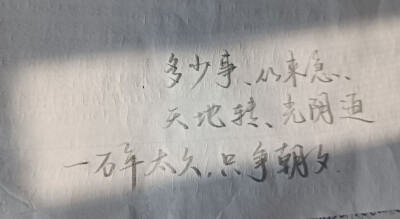 多少事、从来急、
天地转、光阴迫
一万年太久，只争朝夕.